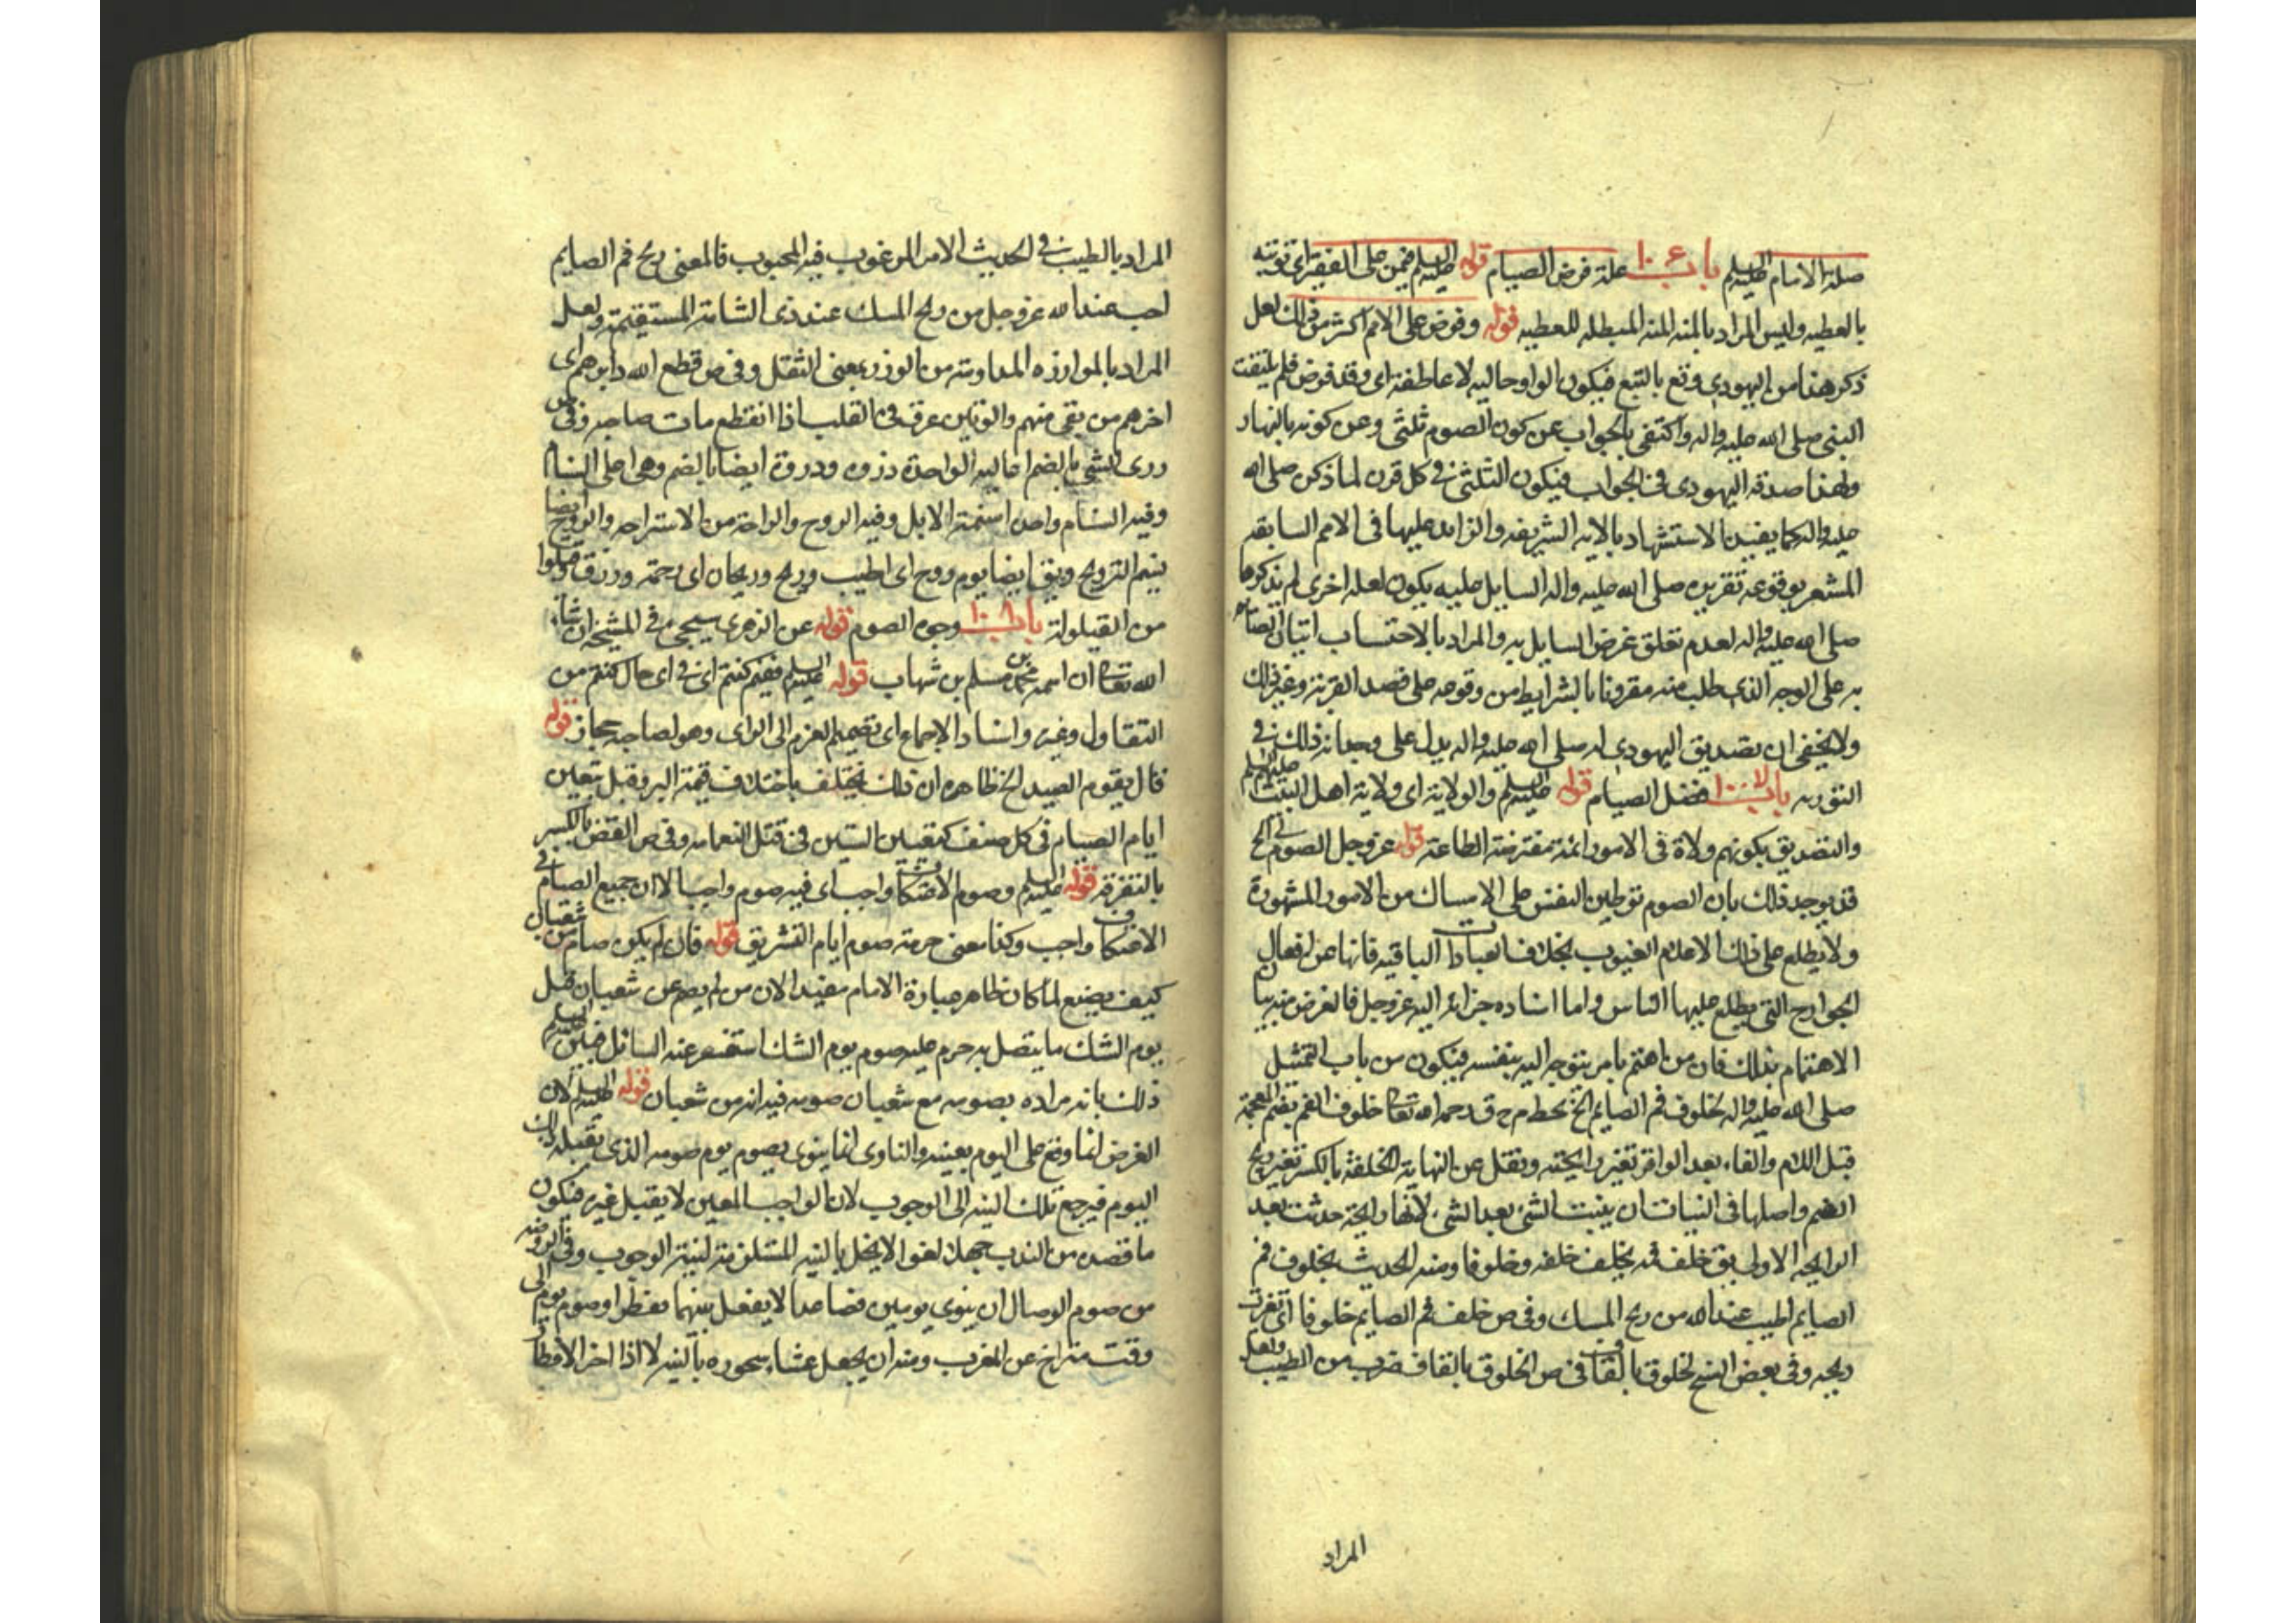 صلة الامام عليه السلم باب علة فرض الصيام قوله عليه السلم فيمن على الفقير اى توتيه
بالعطيه وليس المراد بالمنه المنه المبطله للعطيه قوله وفرض على الامم اكثر من ذلك لعل
ذكر هذا من اليهودى وقع بالتبع فيكون الواو حاليه لا عاطفة اى وقد فرض فلم يلتفت
النبى صلى الله عليه واله واكتفى بالجواب عن كون الصوم ثلثى وعن كونه بالنهار
ولهذا صدقه اليهودى فى الجواب فيكون الثلثى فى كل قرن لما ذكره صلى الله
عليه واله كما يفيده الاستشهاد بالايه الشريفه والزايد عليها فى الامم السابقه
المشعر بوقوعه تقريره صلى الله عليه واله السايل عليه يكون لعله اخرى لم يذكرها
صلى الله عليه واله لعدم تعلق غرض السايل به والمراد بالاحتساب اتيان الصائم
به على الوجه الذى طلب منه مقرونا بالشرايط من وقوعه على قصد القربة وغير ذلك
ولا يخفى ان تصديق اليهودى له صلى الله عليه واله يدل على وجدانه ذلك فى
التوريه باب فضل الصيام قوله عليه السلم والولاية اى ولاية اهل البيت عليهم السلم
والتصديق بكونهم ولاة فى الامور ائمة مفترضة الطاعة قوله عز وجل الصوم لى الخ
قد يوجه ذلك بان الصوم توطين النفس على الامساك من الامور المشهورة
ولا يطلع على ذلك الا علام الغيوب بخلاف العبادات الباقيه فانها عن افعال
الجوارح التى يطلع عليها الناس واما اسناده جزائه اليه عز وجل فالغرض منه بيان
الاهتمام بذلك فان من اهتم بامر يتوجه اليه بنفسه فيكون من باب التمثيل
صلى الله عليه واله لخلوف فم الصايم الخ بخط م ح ق رحمه الله تعالى خلوف الفم بضم المعجمة
قبل اللام والفاء بعد الواو تغير رايحته ونقل عن النهاية الخلفة بالكسر تغير ريح
الفم واصلها فى النبات ان ينبت الشئ بعد الشئ لانها رايحة حدثت بعد
الرايحه الاولى يق خلف فمه يخلف خلفه وخلوفا ومنه الحديث لخلوف فم
الصايم اطيب عند الله من ريح المسك وفى ص خلف فم الصايم خلوفا اى تغيرت
ريحه وفى بعض النسخ لخلوق بالقاف فى ص الخلوق بالقاف ضرب من الطيب ولعل
المراد
المراد بالطيب فى الحديث الامر المرغوب فيه المحبوب فالمعنى ريح فم الصايم
احب عند الله عز وجل من ريح المسك عند ذى الشامة المستقيمة ولعل
المراد بالموازره المعاونة من الوزر بمعنى الثقل وفى ص قطع الله دابرهم اى
اخرهم من بقى منهم والوتين عرق فى القلب اذا انقطع مات صاحبه وفى ص
ذرى الشئ بالضم اعاليه الواحدة ذروه وذروة ايضا بالضم وهى اعلى السنام
وفيه السنام واحد اسنمة الابل وفيه الروح والراحة من الاستراحه والروح ايضا
نسيم الريح ويق ايضا يوم روح اى طيب وريح وريحان اى رحمة ورزق قيلوا
من القيلولة باب وجوه الصوم قوله عن الزهرى سيجئ فى المشيخه انشاء
الله تعالى ان اسمه محمد بن مسلم بن شهاب قوله عليه السلم ففيم كنتم اى فى اى حال كنتم من
التقاول وغيره واسناد الاجماع اى تصميم العزم الى الراى وهو لصاحبه مجاز قوله
قال يقوم الصيد الخ ظاهره ان ذلك يختلف باختلاف قيمة البر وقبل بتعين
ايام الصيام فى كل صنف كتعيين الستين فى قتل النعامه وفى ص الفض بالكسر
بالتفرقة قوله عليه السلم وصوم الاعتكاف واجب اى فيه صوم واجب الا ان جميع الصيام فى
الاعتكاف واجب وكذا معنى حرمة صوم ايام التشريق قوله فان لم يكن صام من شعبان
كيف يصنع لما كان ظاهر عبارة الامام مفيدا لان من لم يصم عن شعبان قبل
يوم الشك ما يتصل به حرم عليه صوم يوم الشك استفسر عنه السائل فبين عليه السلم
ذلك بانه مراده بصومه مع شعبان صومه فيه انه من شعبان قوله عليه السلم لان
الفرض انما وقع على اليوم بعينه والناوى انما ينوى بصوم يوم صومه الذى يقبله ذلك
اليوم فيرجع تلك النيه الى الوجوب لان الواجب المعين لا يقبل غيره فيكون
ما قصده من الندب جهلا لغوا لا يخل بالنيه المستلزمة لنية الوجوب وفى الروضه
من صوم الوصال ان ينوى يومين فصاعدا لا يفصل بينهما بفطر او صوم يوم الى
وقت متراخ عن المغرب ومنه ان يجعل عشاءه سحوره بالنيه لا اذا اخر الافطار